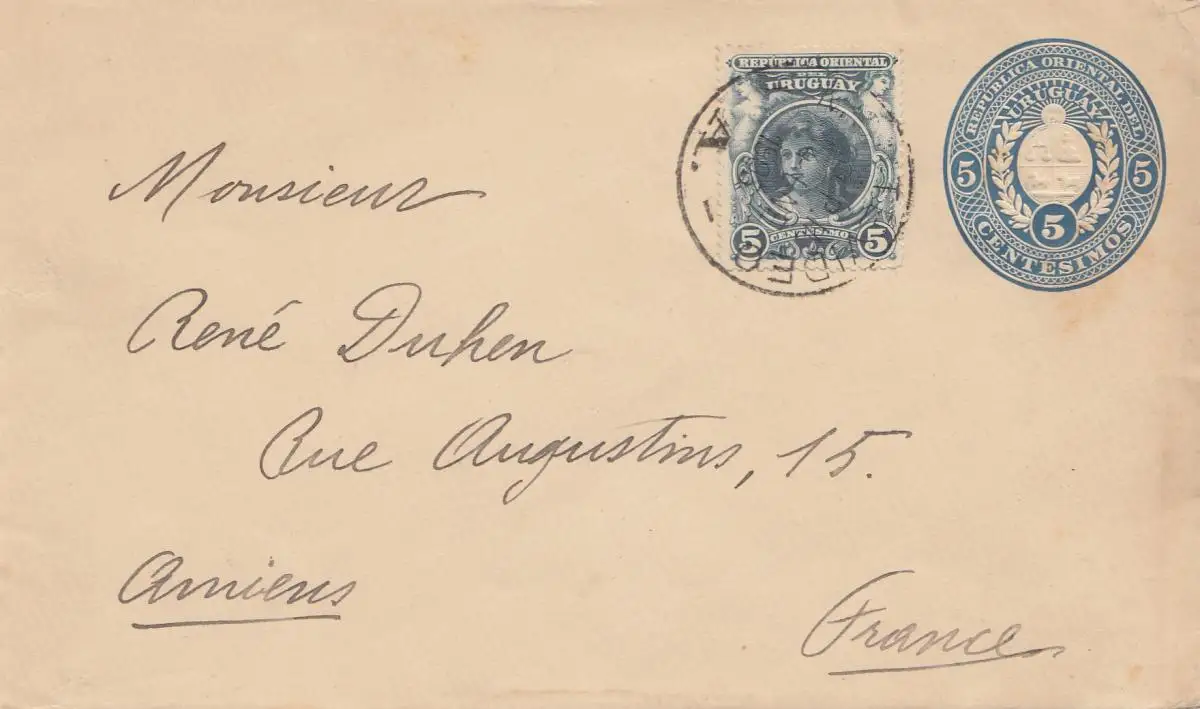 REPÚBLICA ORIENTAL
DEL
URUGUAY
5 CENTÉSIMOS 5
REPUBLICA ORIENTAL DEL
URUGUAY
5 5
5
CENTESIMOS
A.
Monsieur
René Duhen
Rue Augustins, 15.
Amiens
France